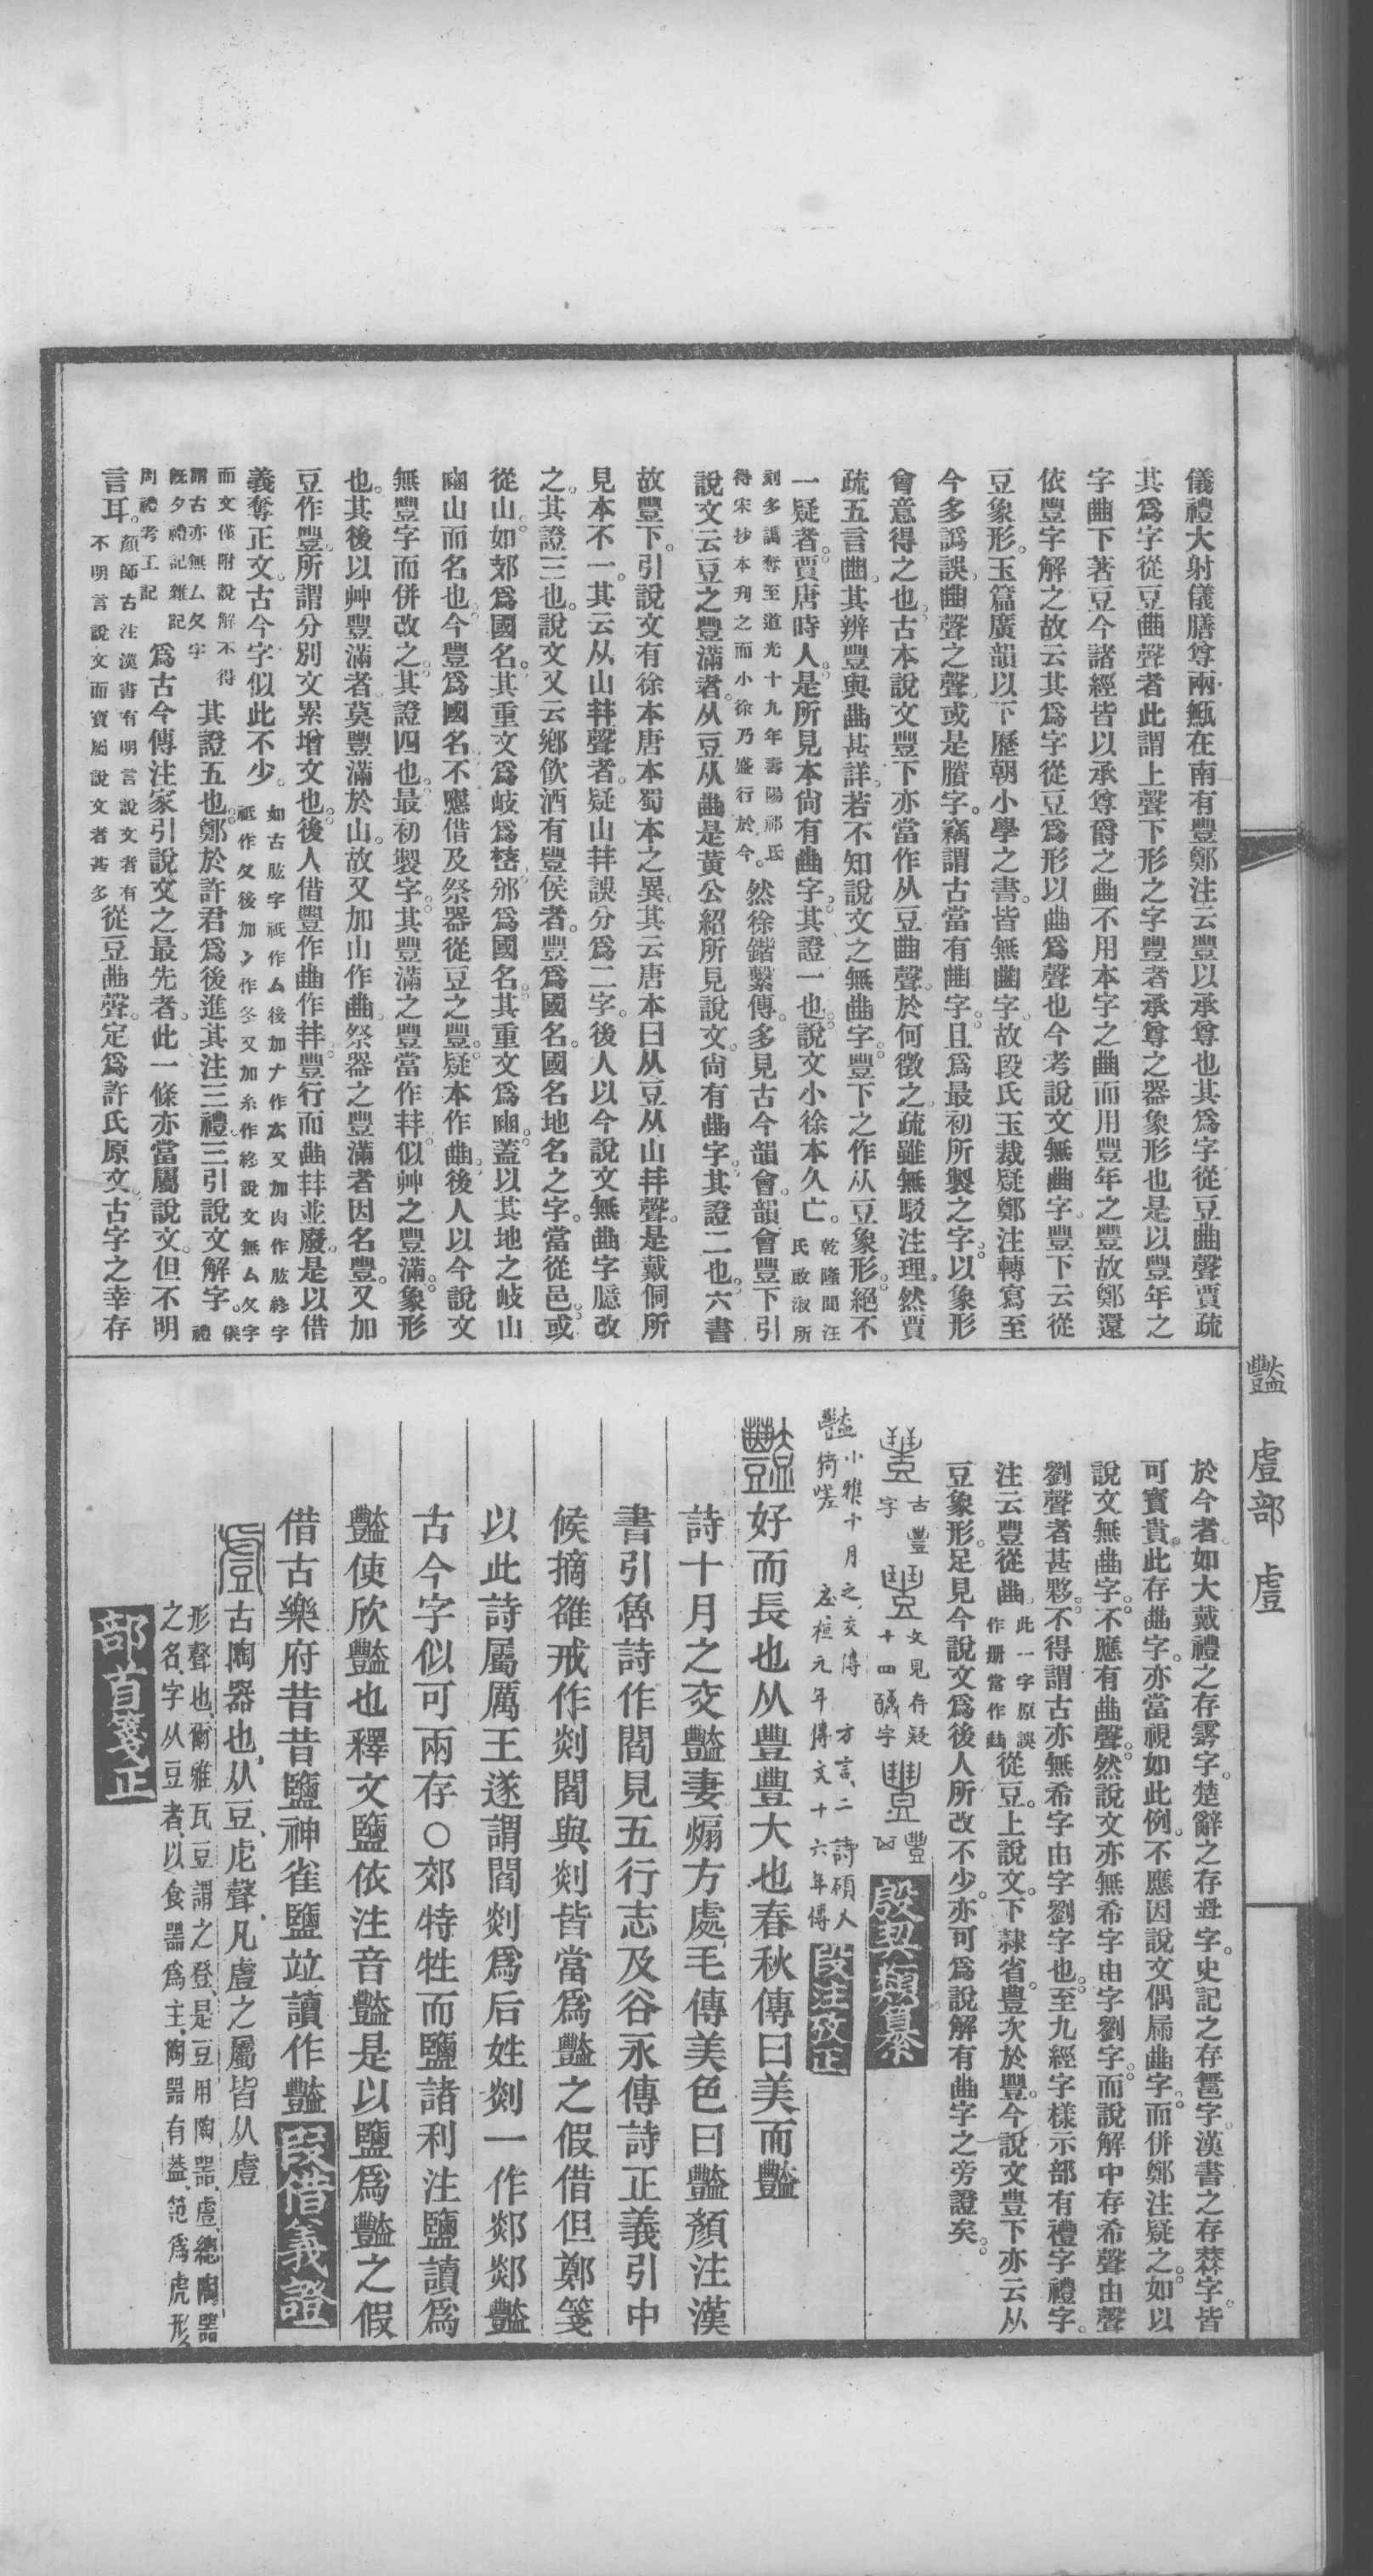 儀禮大射儀膳尊兩甒在南有豐鄭注云豐以承尊也其爲字從豆曲聲賈疏
其爲字從豆曲聲者此謂上聲下形之字豐者承尊之器象形也是以豐年之
字曲下著豆今諸經皆以承尊爵之曲不用本字之曲而用豐年之豐故鄭還
依豐字解之故云其爲字從豆爲形以曲爲聲也今考說文無曲字豐下云從
豆象形。玉篇廣韻以下歷朝小學之書。皆無曲字。故段氏玉裁疑鄭注轉寫至
今多譌誤。曲聲之聲。或是賸字。竊謂古當有曲字。且爲最初所製之字。以象形
會意得之也。古本說文豐下亦當作从豆曲聲。於何徵之。疏雖無駁注理。然賈
疏五言曲。其辨豐與曲甚詳。若不知說文之無曲字。豐下之作从豆象形。絕不
一疑者。賈唐時人。是所見本尙有曲字。其證一也。說文小徐本久亡。乾隆間汪
氏啟淑所
刻多譌奪至道光十九年壽陽祁氏
得宋抄本刋之而小徐乃盛行於今。然徐鍇繫傳。多見古今韻會。韻會豐下引
說文云豆之豐滿者。从豆从曲是黄公紹所見說文。尙有曲字。其證二也。六書
故豐下。引說文有徐本唐本蜀本之異。其云唐本曰从豆从山丰聲。是戴侗所
見本不一。其云从山丰聲者。疑山丰誤分爲二字。後人以今說文無曲字臆改
之。其證三也。說文又云鄕飮酒有豐侯者。豐爲國名。國名地名之字。當從邑。或
從山。如郊爲國名。其重文爲岐爲嶅邠爲國名。其重文爲豳。蓋以其地之岐山
豳山而名也。今豐爲國名。不應借及祭器從豆之豐。疑本作曲。後人以今說文
無豐字而併改之。其證四也。最初製字。其豐滿之豐當作丰。似艸之豐滿。象形
也。其後以艸豐滿者。莫豐滿於山。故又加山作曲。祭器之豐滿者因名豐。又加
豆作豐。所謂分別文累增文也。後人借豐作曲作丰。豐行而曲丰並廢。是以借
義奪正文。古今字似此不少。如古肱字祇作厶後加ナ作厷又加肉作肱終字
祇作夂後加冫作冬又加糸作終說文無厶夂字
而文僅附說解不得
謂古亦無厶夂字其證五也。鄭於許君爲後進。其注三禮。三引說文解字。儀
禮
旣夕禮記雜記
周禮考工記爲古今傳注家引說文之最先者。此一條亦當屬說文。但不明
言耳。顏師古注漢書有明言說文者有
不明言說文而實屬說文者甚多從豆曲聲。定爲許氏原文。古字之幸存
於今者。如大戴禮之存字。楚辭之存字。史記之存字。漢書之存字。皆
可寶貴。此存曲字。亦當視如此例。不應因說文偶屚曲字。而併鄭注疑之。如以
說文無曲字。不應有曲聲。然說文亦無希字由字劉字。而說解中存希聲由聲
劉聲者甚夥。不得謂古亦無希字由字劉字也。至九經字樣示部有禮字禮字
注云豐從曲此一字原誤
作册當作從豆。上說文。下隸省。豊次於豐。今說文豊下亦云从
豆象形。足見今說文爲後人所改不少。亦可爲說解有曲字之旁證矣。
古豐
字 文見存疑
十四字 豐
殷契類纂
豔小雅十月之交傳 方言二 詩碩人
猗嗟 左桓元年傳 文十六年傳 段注攷正
好而長也从豐豐大也春秋傳曰美而豔
詩十月之交豔妻煽方處毛傳美色曰豔顏注漢
書引魯詩作閻見五行志及谷永傳詩正義引中
候摘雒戒作剡閻與剡皆當爲豔之假借但鄭箋
以此詩屬厲王遂謂閻剡爲后姓剡一作郯郯豔
古今字似可兩存〇郊特牲而鹽諸利注鹽讀爲
豔使欣豔也釋文鹽依注音豔是以鹽爲豔之假
借古樂府昔昔鹽神雀鹽竝讀作豔段借義證
古陶器也、从豆、虍聲、凡䖒之屬皆从䖒
形聲也、爾雅瓦豆謂之登、是豆用陶器、䖒、總陶器
之名、字从豆者、以食器爲主、陶器有葢、范爲虎形、
部首箋正
豔 䖒部 䖒